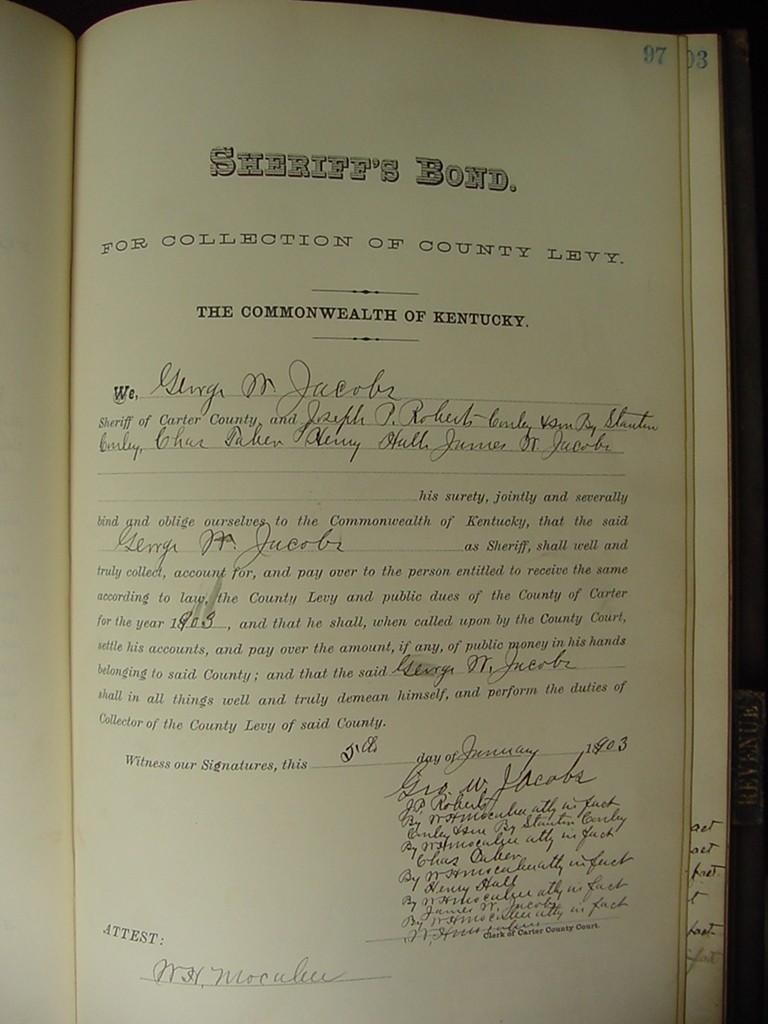 97 03
SHERIFF'S BOND.
FOR COLLECTION OF COUNTY LEVY.
THE COMMONWEALTH OF KENTUCKY.
We, George W. Jacobs
Sheriff of Carter County, and Joseph P. Roberts Conley & Son By Stanton
Conley, Chas Taber Henry Hall James W. Jacobs
his surety, jointly and severally
bind and oblige ourselves to the Commonwealth of Kentucky, that the said
George W. Jacobs as Sheriff, shall well and
truly collect, account for, and pay over to the person entitled to receive the same
according to law, the County Levy and public dues of the County of Carter
for the year 1903, and that he shall, when called upon by the County Court,
settle his accounts, and pay over the amount, if any, of public money in his hands
belonging to said County; and that the said George W. Jacobs
shall in all things well and truly demean himself, and perform the duties of
Collector of the County Levy of said County.
Witness our Signatures, this 5th day of January 1903
Geo. W. Jacobs
J.P. Roberts
By W H Mocabee atty in fact
Conley & Son By Stanton Conley
By W H Mocabee atty in fact
Chas Taber
By W H Mocabee atty in fact
Henry Hall
By W H Mocabee atty in fact
James W. Jacobs
By W H Mocabee atty in fact
W. H. Mocabee
Clerk of Carter County Court.
ATTEST:
W.H. Mocabee
REVENUE
act
act
fact
t
fact
fact